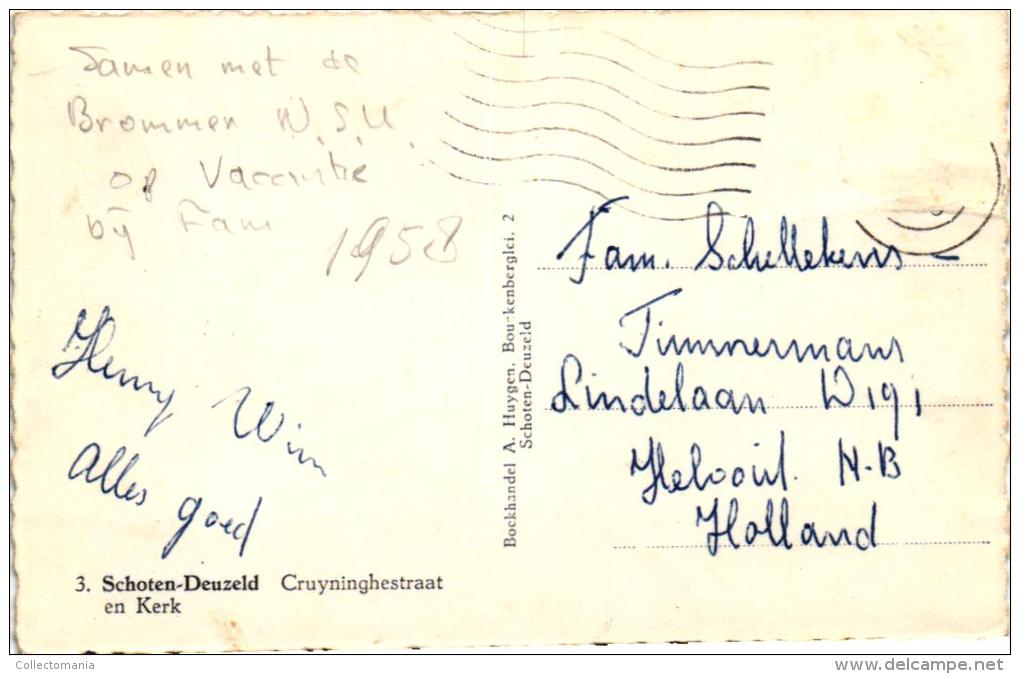 Samen met de
Brommer N.S.U.
op Vacantie
bij Fam
1958
Henny Wim
Alles goed
3. Schoten-Deuzeld Cruyninghestraat
en Kerk
Boekhandel A. Huygen, Bou kenberglei, 2
Schoten-Deuzeld
Fam. Schellekens -
Timmermans
Lindelaan W191
Helvoirt. N-B
Holland
Collectomania
www.delcampe.net